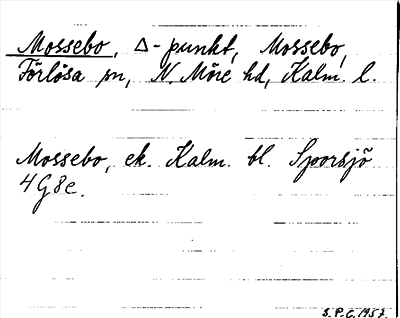 Mossebo, Δ-punkt, Mossebo,
Förlösa sn, N. Möre hd, Kalm. l.
Mossebo, ek. Kalm. bl. Sporsjö
4G8e.
S.P.C. 1957.